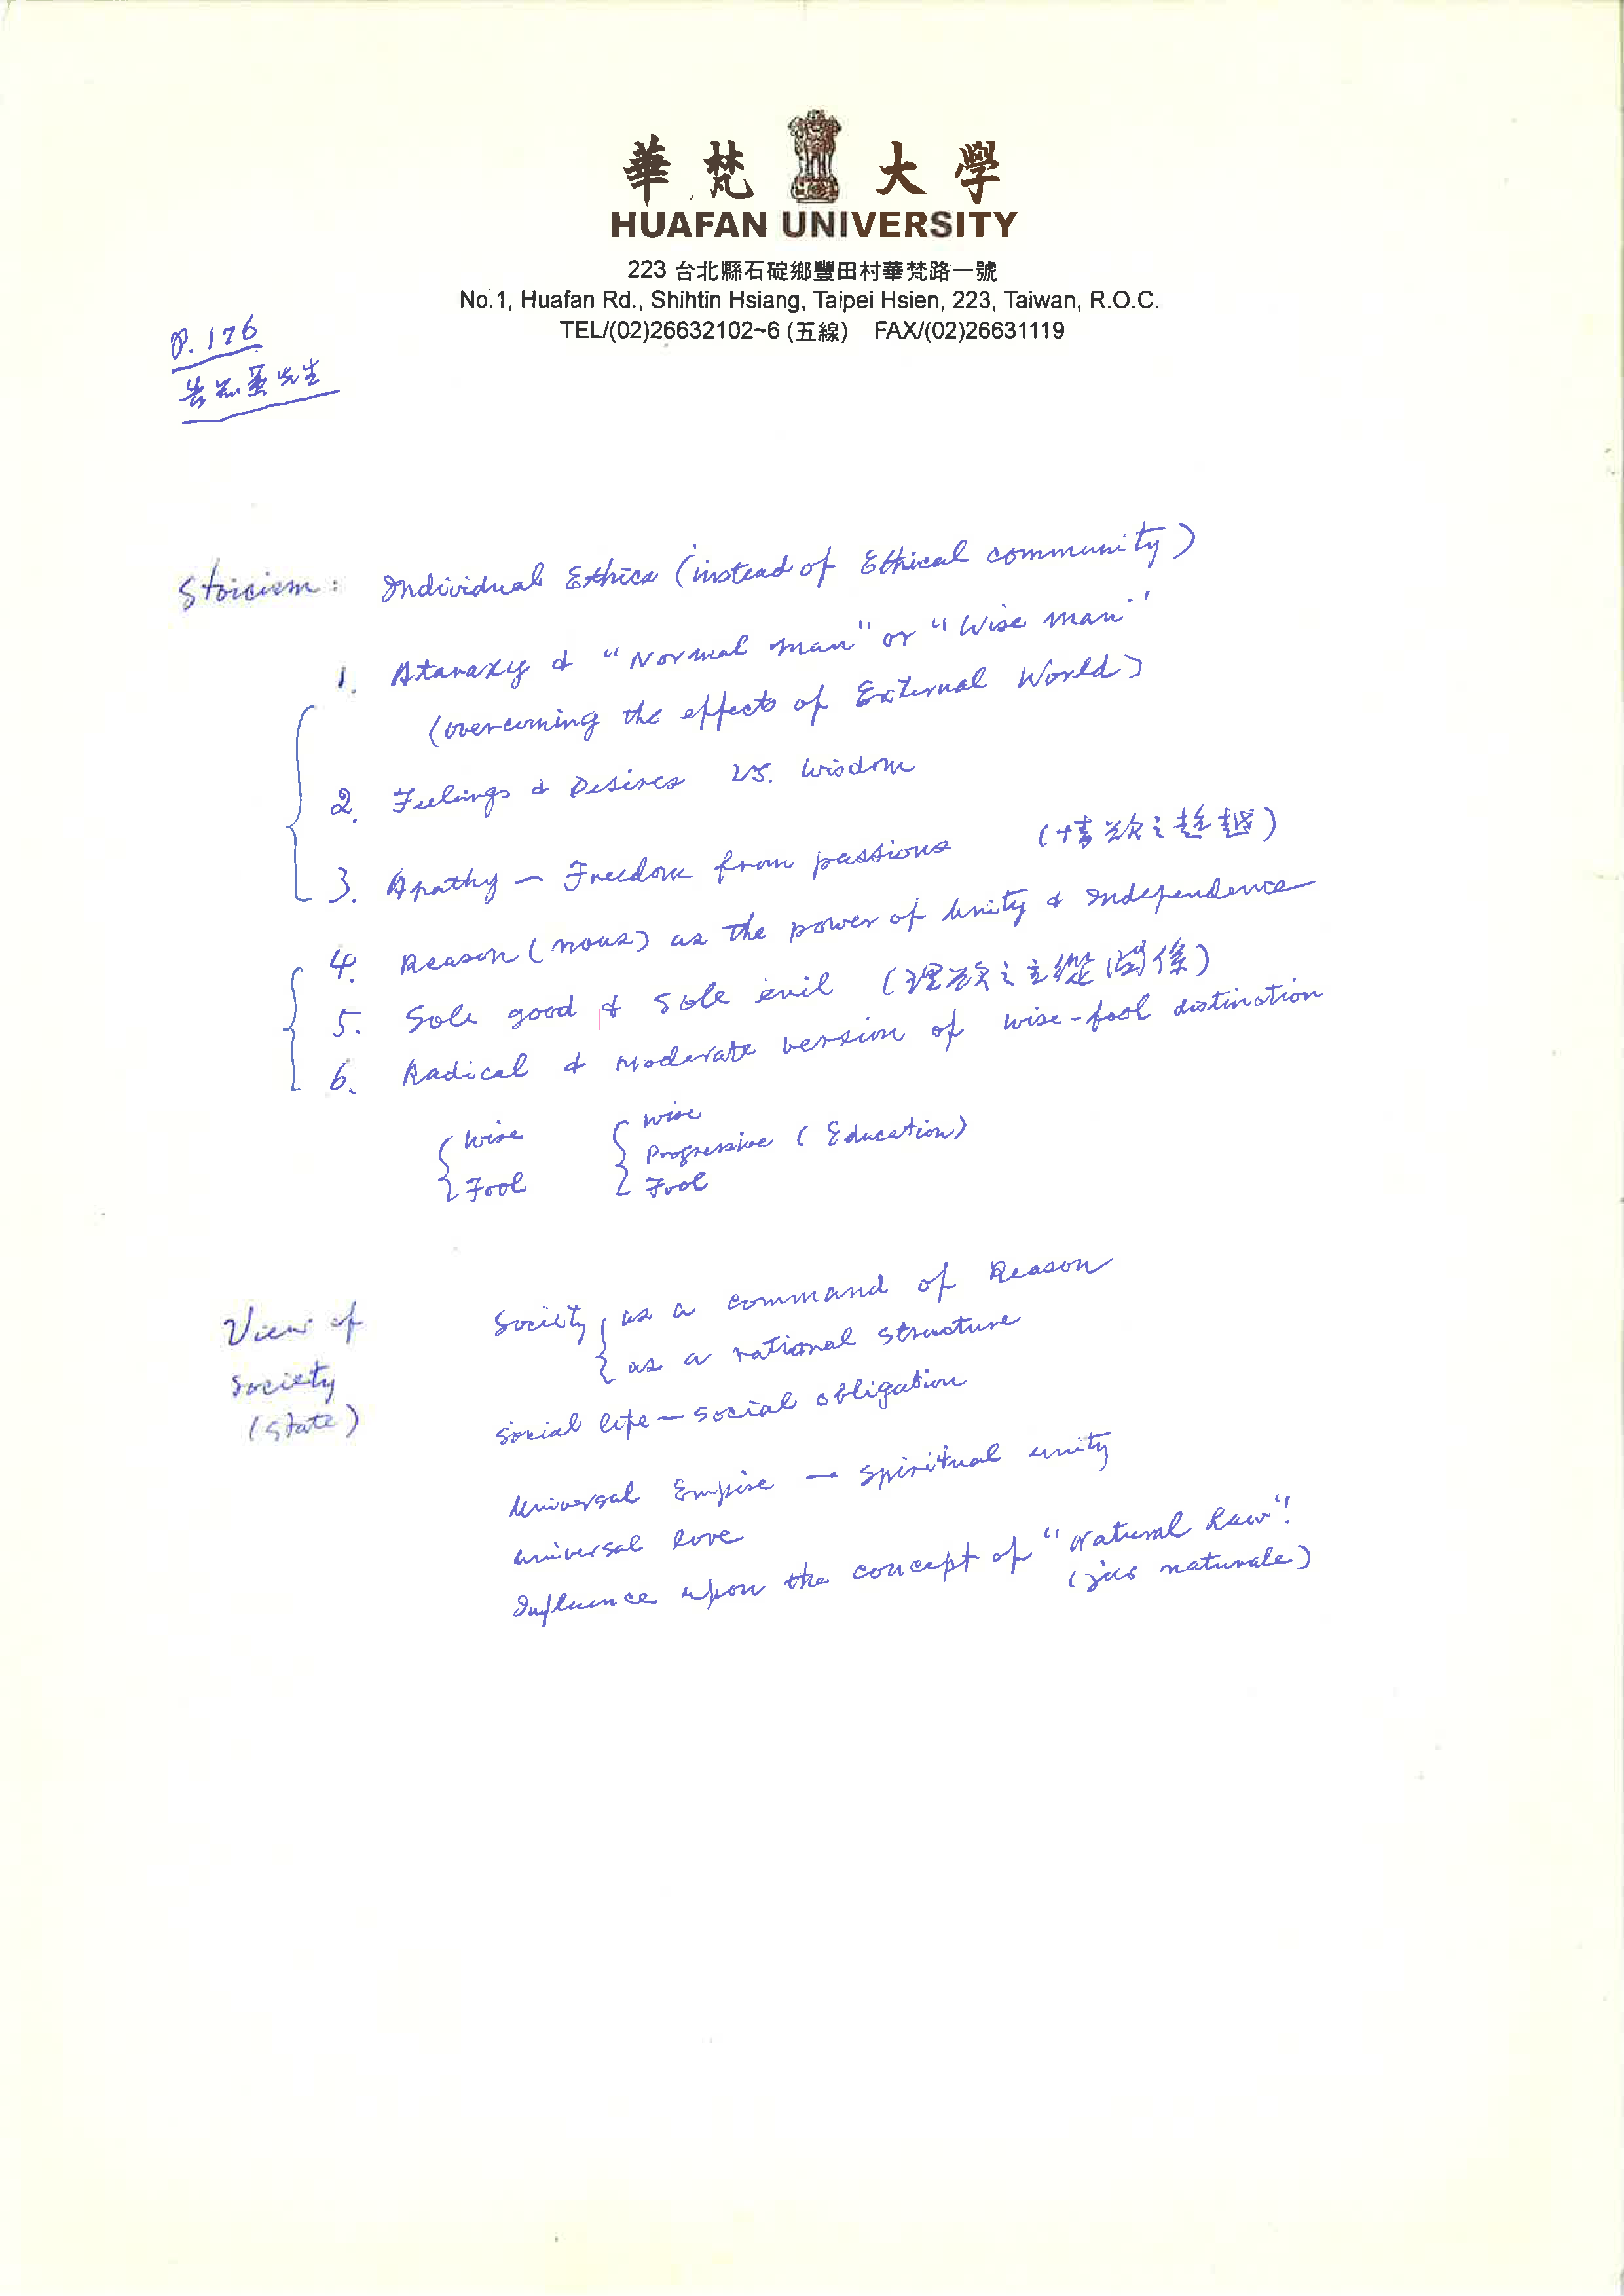 華梵大學
HUAFAN UNIVERSITY
223 台北縣石碇鄉豐田村華梵路一號
No.1, Huafan Rd., Shihtin Hsiang, Taipei Hsien, 223, Taiwan, R.O.C.
TEL/(02)26632102~6 (五線) FAX/(02)26631119
P. 176
先生
Stoicism: Individual Ethics (instead of Ethical community)
1. Ataraxy & "Normal man" or "Wise man"
(overcoming the effects of External World)
2. Feelings & Desires vs. Wisdom
3. Apathy — Freedom from passions (情欲之超越)
4. Reason (nous) as the power of Unity & Independence
5. Sole good & Sole evil (理欲之主從關係)
6. Radical & Moderate version of wise-fool distinction
{ Wise { Wise
Progressive (Education)
Fool Fool
View of Society (State)
Society { as a command of Reason
{ as a rational structure
Social life — social obligation
Universal Empire — spiritual unity
universal love
Influence upon the concept of "Natural Law".
(jus naturale)